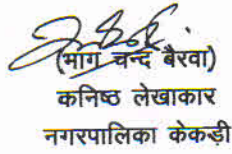 (भाग चन्द बैरवा)
कनिष्ठ लेखाकार
नगरपालिका केकड़ी